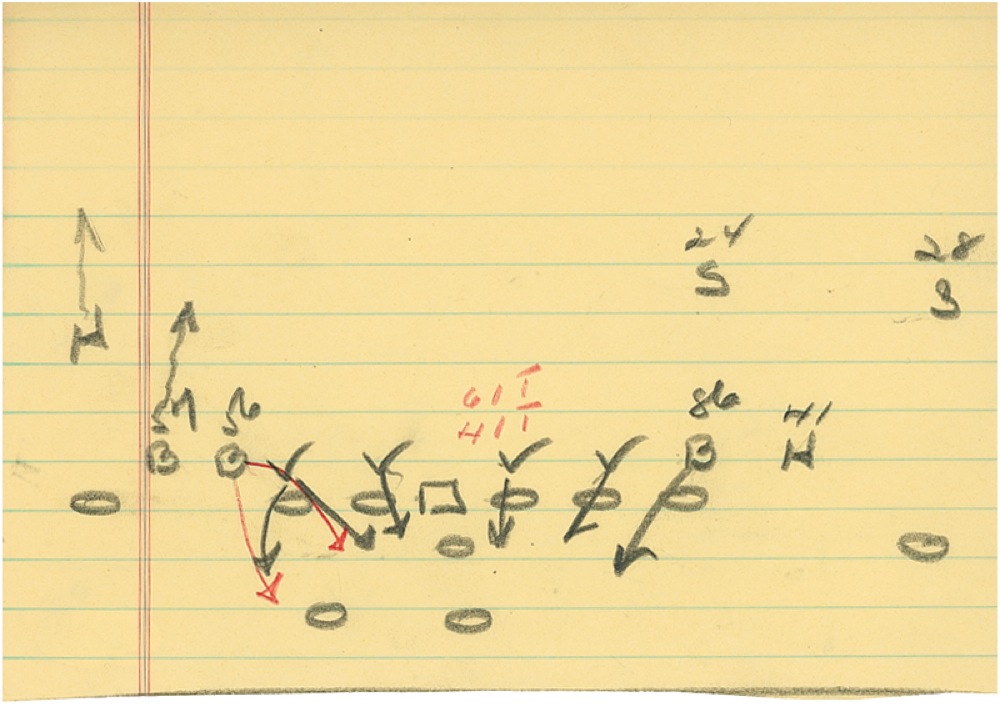 24 28
S S
61 I
57 56 41 I 86 41
B B B